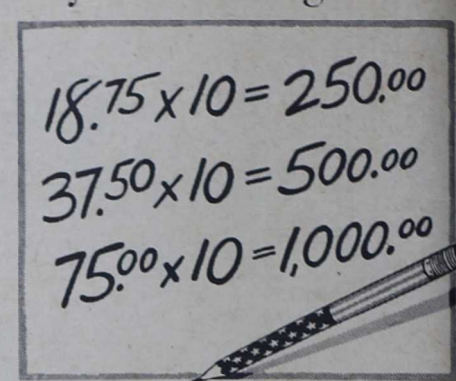 18.75 x 10 = 250.00
37.50 x 10 = 500.00
75.00 x 10 = 1,000.00